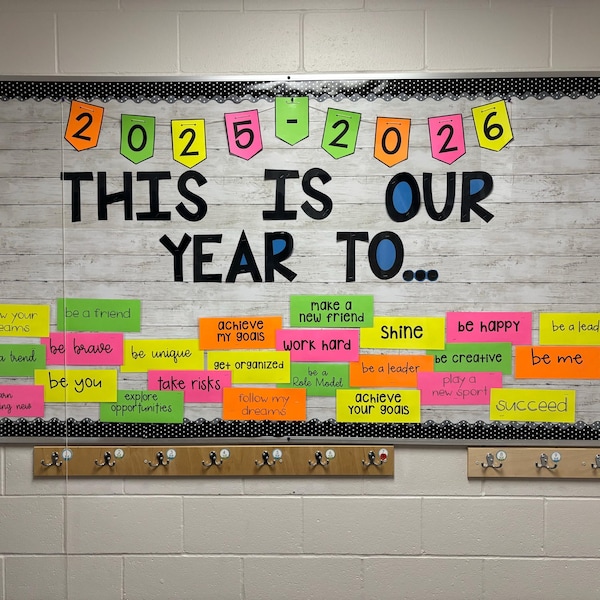 2025-2026
THIS IS OUR
YEAR TO...
make a
new friend
be a friend
your
dreams
achieve
my goals
shine
be happy
be a leader
work hard
be brave
be unique
a trend
get organized
be a
Role Model
be a leader
be creative
be me
be you
take risks
play a
new sport
learn
new
explore
opportunities
follow my
dreams
achieve
your goals
succeed